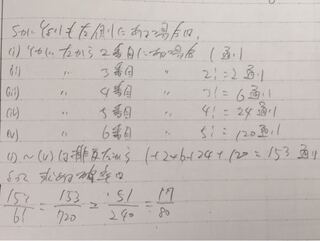 5がいちばん左側にある場合
(i) 4が左から2番目にある場合 1通り
(ii) 〃 3番目 〃 2! = 2通り
(iii) 〃 4番目 〃 3! = 6通り
(iv) 〃 5番目 〃 4! = 24通り
(v) 〃 6番目 〃 5! = 120通り
(i)～(v)は排反だから 1+2+6+24+120 = 153通り
よって 求める確率は
153/6! = 153/720 = 51/240 = 17/80